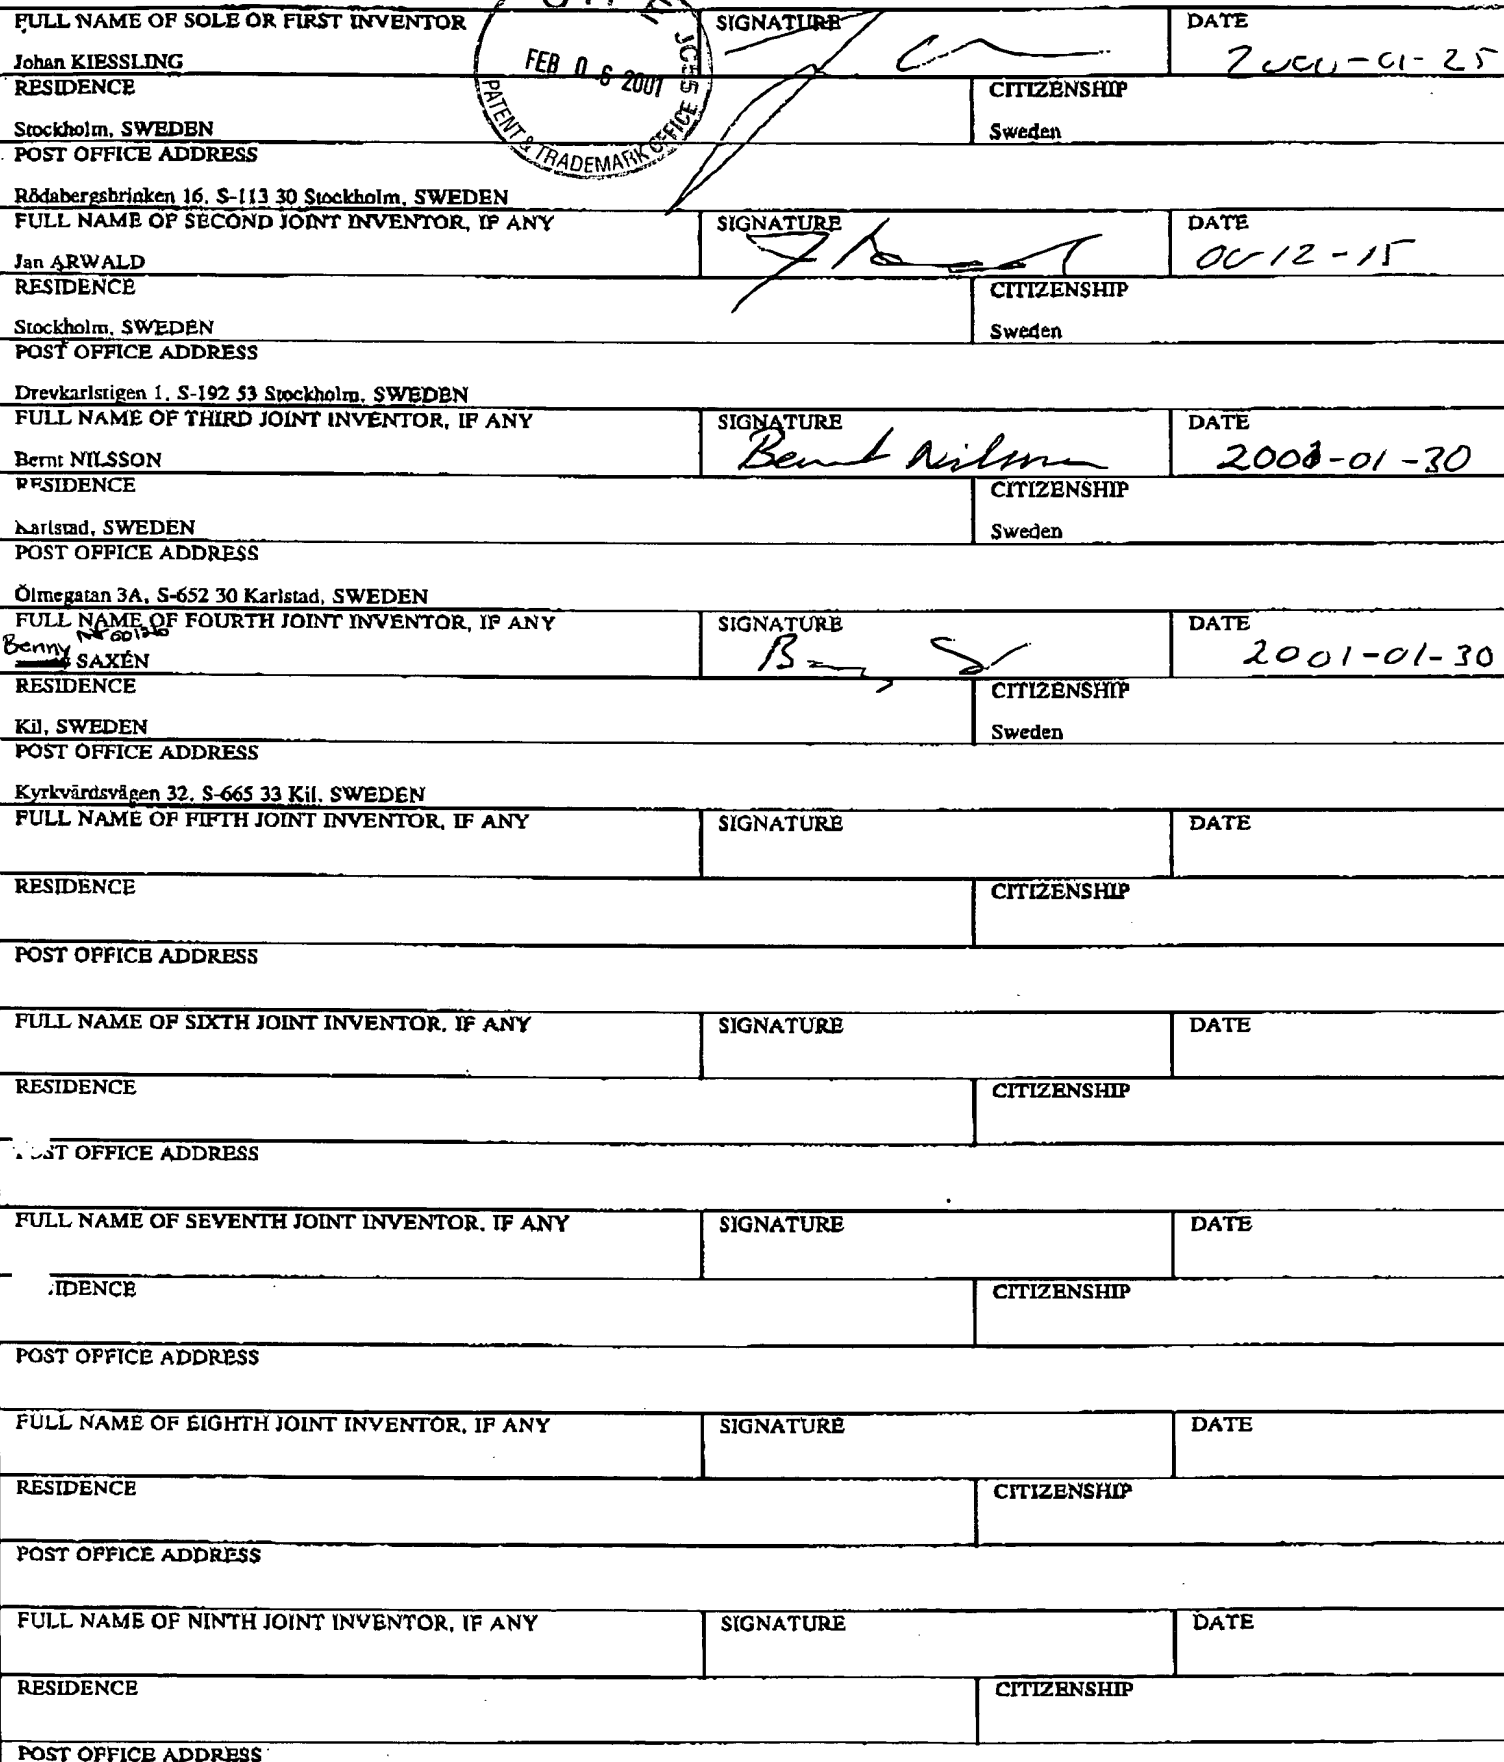 FULL NAME OF SOLE OR FIRST INVENTOR SIGNATURE DATE
Johan KIESSLING 2000-01-25
FEB 06 2001
JC55
PATENT & TRADEMARK OFFICE
RESIDENCE CITIZENSHIP
Stockholm, SWEDEN Sweden
POST OFFICE ADDRESS
Rödabergsbrinken 16, S-113 30 Stockholm, SWEDEN
FULL NAME OF SECOND JOINT INVENTOR, IF ANY SIGNATURE DATE
Jan ARWALD 00-12-15
RESIDENCE CITIZENSHIP
Stockholm, SWEDEN Sweden
POST OFFICE ADDRESS
Drevkarlstigen 1, S-192 53 Stockholm, SWEDEN
FULL NAME OF THIRD JOINT INVENTOR, IF ANY SIGNATURE DATE
Bernt NILSSON Bernt Nilsson 2001-01-30
RESIDENCE CITIZENSHIP
Karlstad, SWEDEN Sweden
POST OFFICE ADDRESS
Ölmegatan 3A, S-652 30 Karlstad, SWEDEN
FULL NAME OF FOURTH JOINT INVENTOR, IF ANY SIGNATURE DATE
Benny SAXÉN 2001-01-30
RESIDENCE CITIZENSHIP
Kil, SWEDEN Sweden
POST OFFICE ADDRESS
Kyrkvärdsvägen 32, S-665 33 Kil, SWEDEN
FULL NAME OF FIFTH JOINT INVENTOR, IF ANY SIGNATURE DATE
RESIDENCE CITIZENSHIP
POST OFFICE ADDRESS
FULL NAME OF SIXTH JOINT INVENTOR, IF ANY SIGNATURE DATE
RESIDENCE CITIZENSHIP
POST OFFICE ADDRESS
FULL NAME OF SEVENTH JOINT INVENTOR, IF ANY SIGNATURE DATE
IDENCE CITIZENSHIP
POST OFFICE ADDRESS
FULL NAME OF EIGHTH JOINT INVENTOR, IF ANY SIGNATURE DATE
RESIDENCE CITIZENSHIP
POST OFFICE ADDRESS
FULL NAME OF NINTH JOINT INVENTOR, IF ANY SIGNATURE DATE
RESIDENCE CITIZENSHIP
POST OFFICE ADDRESS